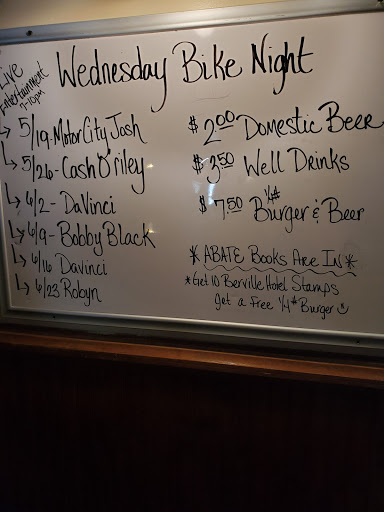 Wednesday Bike Night
Live
Entertainment
7-10pm
5/19-MotorCity Josh
5/26-Cash O'riley
6/2-DaVinci
6/9-Bobby Black
6/16 Davinci
6/23 Robyn
$2.00 Domestic Beer
$3.50 Well Drinks
$7.50 1/4# Burger & Beer
*ABATE Books Are In*
*Get 10 Berville Hotel Stamps
get a Free 1/4# Burger ☺